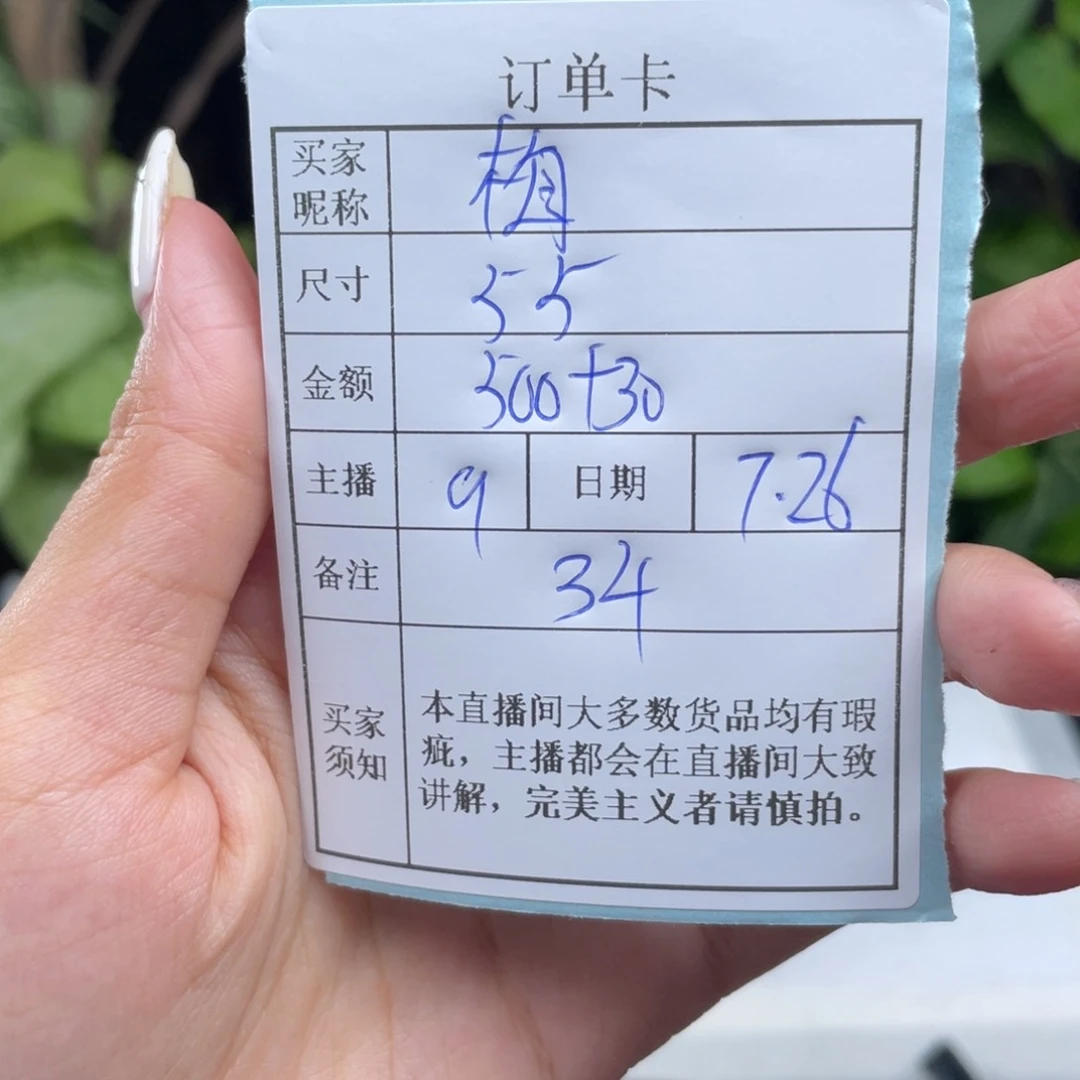 订单卡
买家
昵称
梅
尺寸
55
金额
500+30
主播
9
日期
7.26
备注
34
买家
须知
本直播间大多数货品均有瑕
疵，主播都会在直播间大致
讲解，完美主义者请慎拍。